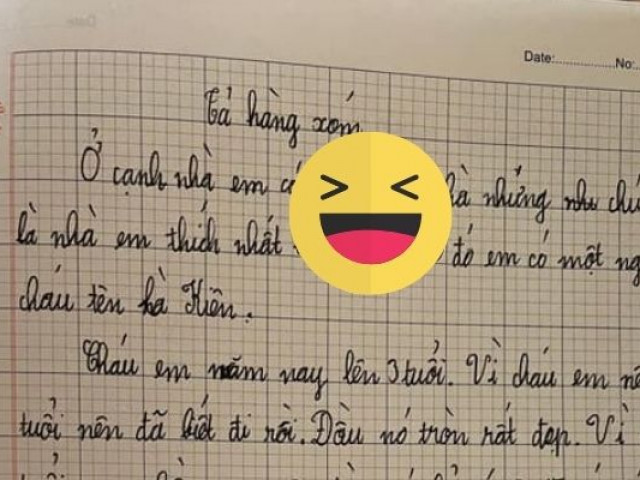 Date:..................No:..
Tả hàng xóm
Ở cạnh nhà em nhà những như chú
là nhà em thích nhất đó em có một
cháu tên là Kiên.
Cháu em năm nay lên 3 tuổi. Vì cháu em
tuổi nên đã biết đi rồi. Đầu nó tròn rất đẹp. Vì